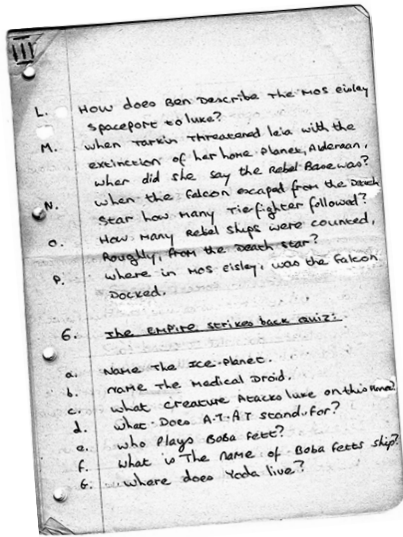 III
L. How does Ben Describe The Mos eisley
spaceport to luke?
M. when Tarkin Threatened leia with the
extinction of her home Planet, Alderaan,
wher did she say the Rebel Base was?
N. when the falcon escaped from the Death
Star how many Tie fighter followed?
O. How many Rebel ships were counted,
Roughly, from the Death star?
P. where in mos eisley, was the falcon
Docked.
6. The EMPire strikes back quiz:
a. Name The Ice-Planet.
b. name The Medical Droid.
c. what creature Atacks luke on this Planet?
d. what Does A.T-A.T stand for?
e. who Plays Boba fett?
f. what is The name of Boba fetts ship?
G. where does Yoda live?